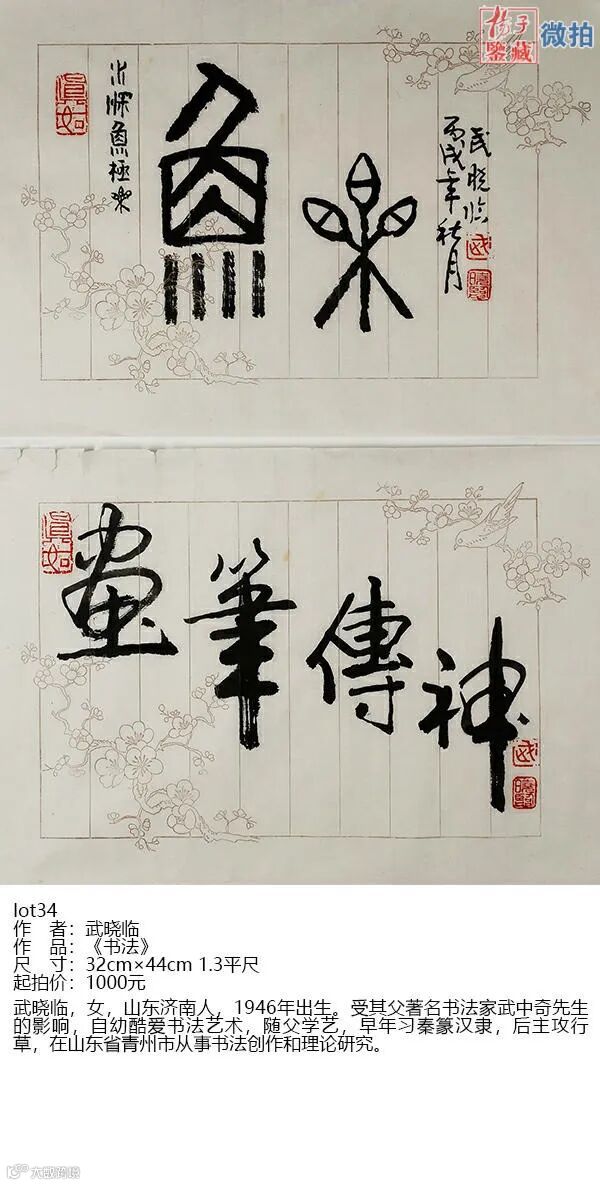 揚子
鑒藏
微拍
真如
水深魚極樂
魚樂
丙戌年秋月
武晓临
武
真如
畫筆傳神
武
lot34
作 者：武晓临
作 品：《书法》
尺 寸：32cm×44cm 1.3平尺
起拍价：1000元
武晓临，女，山东济南人，1946年出生。受其父著名书法家武中奇先生
的影响，自幼酷爱书法艺术，随父学艺，早年习秦篆汉隶，后主攻行
草，在山东省青州市从事书法创作和理论研究。